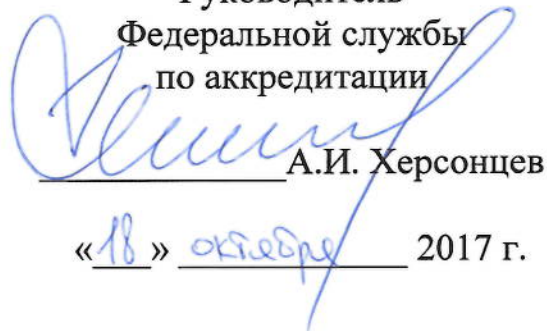 Руководитель
Федеральной службы
по аккредитации
А.И. Херсонцев
«18» октября 2017 г.